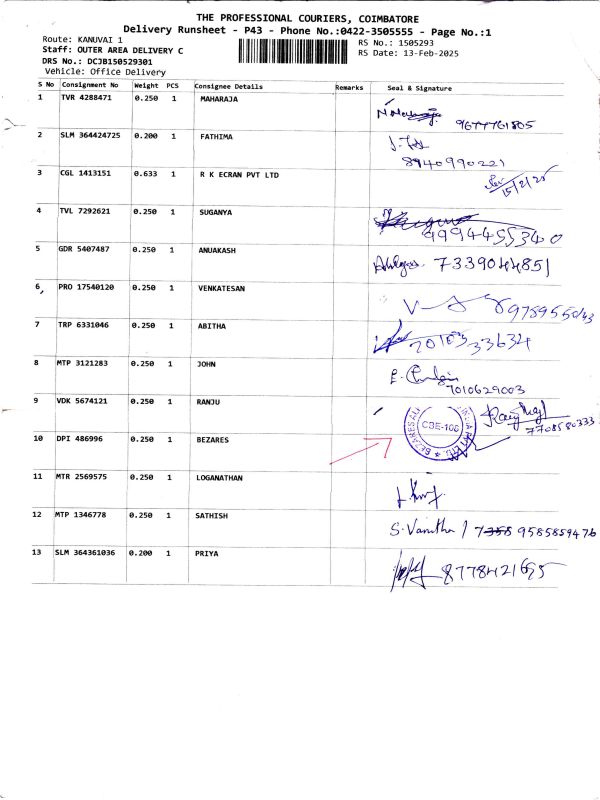 THE PROFESSIONAL COURIERS, COIMBATORE
Delivery Runsheet - P43 - Phone No.:0422-3505555 - Page No.:1
Route: KANUVAI 1
RS No.: 1505293
Staff: OUTER AREA DELIVERY C
RS Date: 13-Feb-2025
DRS No.: DCJB150529301
Vehicle: Office Delivery
S No Consignment No Weight PCS Consignee Details Remarks Seal & Signature
1 TVR 4288471 0.250 1 MAHARAJA
9677761805
2 SLM 364424725 0.200 1 FATHIMA
8940990221
3 CGL 1413151 0.633 1 R K ECRAN PVT LTD
15/2/25
4 TVL 7292621 0.250 1 SUGANYA
9994455340
5 GDR 5407487 0.250 1 ANUAKASH
7339044851
6 PRO 17540120 0.250 1 VENKATESAN
9789550143
7 TRP 6331046 0.250 1 ABITHA
2010333634
8 MTP 3121283 0.250 1 JOHN
7010629003
9 VDK 5674121 0.250 1 RANJU
7708580333
CBE-108
10 DPI 486996 0.250 1 BEZARES
11 MTR 2569575 1 LOGANATHAN 0.250
12 MTP 1346778 0.250 1 SATHISH
S. Vanitha / 9585859476
13 SLM 364361036 0.200 1 PRIYA
8778421695